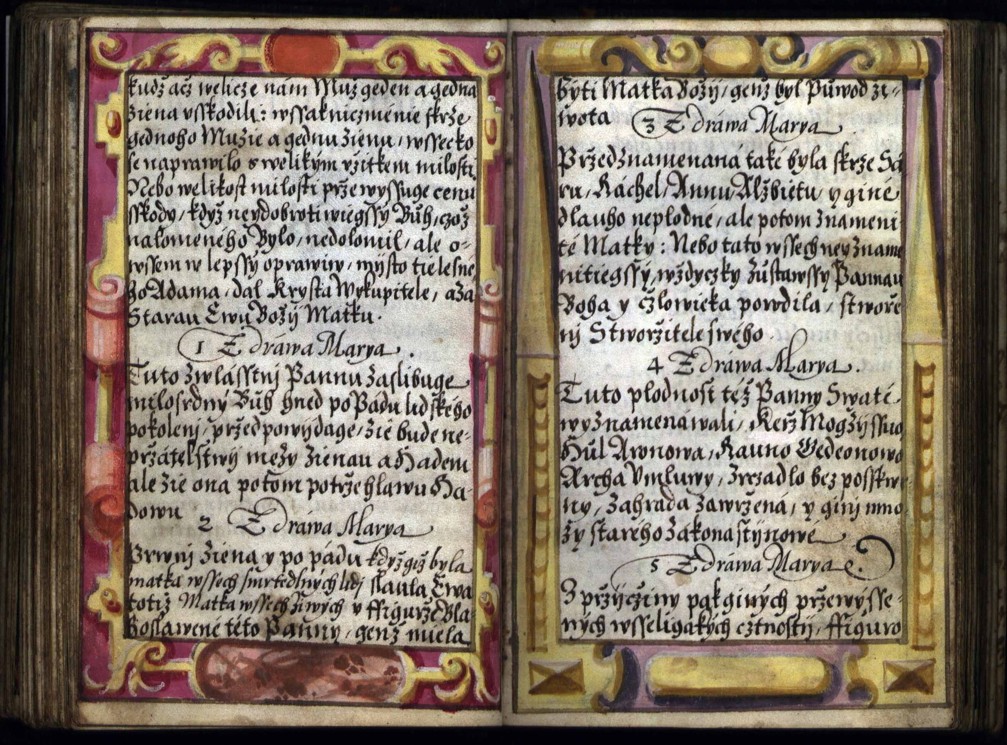 kudž ačz welicze nám Muž geden a gedna
žiena vsskodili: wssak niczmenie skrze
gednoho Muzie a gednu ženu, wssecko
se naprawilo s welikým vžitkem milosti,
Nebo welikost milosti přewyssuge cenu
sskody, když neydobrotiwiegssý Bůh, což
nalomeného Bylo, nedolomil, ale o-
wssem w lepssý oprawiw, mýsto tielesne-
ho Adama, dal Krysta Wykupitele, a za
Starau Ewu Božij Matku.
1 Zdráwa Marya.
Tuto zwlásstnj Pannu zaslibuge
milosrdný Bůh hned po Pádu lidského
pokolenj, předpowijdage, že bude ne-
přzátelstwij mezy Ženau a Hadem
ale že ona potom potrže hlawu Ha-
dowu
2 Zdráwa Marya
Prwnj Žiena y po pádu když giž byla
matka wssech smrtedlných lidj slaula Ewa
totiž Matka wssech žiwých v ffiguřze Bla-
hoslawené této Panny, genž miela
býti Matka Božij, genž byl Půwod ži-
wota
3 Zdráwa Marya
Předznamenaná také byla skrze Sá-
ru, Ráchel, Annu, Alžbietu, y giné
dlauho neplodné, ale potom znameni-
té Matky: Nebo tato wssech neyzname-
nitiegssý, wždyczky zůstawssy Pannau
Boha y Cžlowieka porodila, stwoře-
nj Stwořitele swého.
4 Zdráwa Marya.
Tuto plodnost též Panny Swaté
wyznamenáwali, Keř Mogžijssůw
Hůl Aronowa, Rauno Gedeonowo
Archa Vmluwy, Zrzadlo bez posskwr-
ny, Zahrada Zawřená, y ginij mno-
zý starého Zákona stijnowé
5 Zdráwa Marya
Z přijčziny pak giných přewýsse-
ných wsseligakých cztnostij, ffiguro